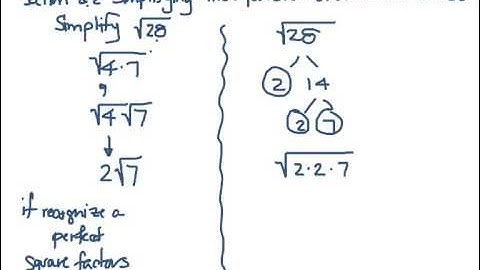 Simplifying
Simplify √28
√4·7
√4 √7
2√7
if recognize a
perfect
square factors
√28
2 14
2 7
√2·2·7